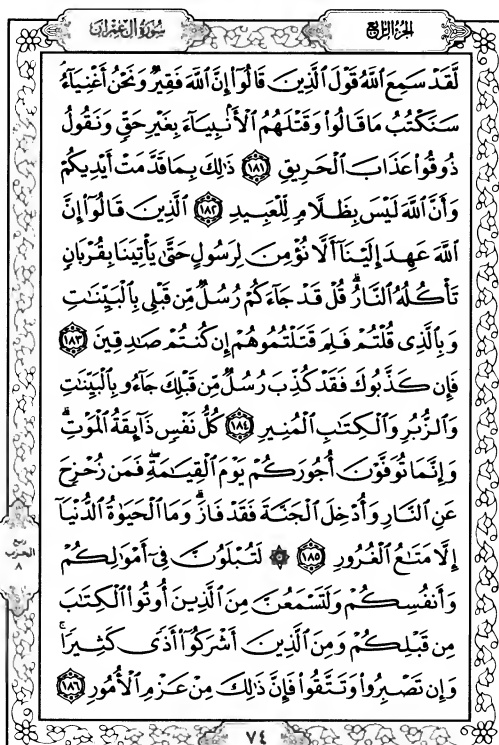 سُورَةُ آلِ عِمْرَانَ
الجُزْءُ الرَّابِعُ
لَّقَدْ سَمِعَ اللَّهُ قَوْلَ الَّذِينَ قَالُوٓا۟ إِنَّ اللَّهَ فَقِيرٌ وَنَحْنُ أَغْنِيَآءُ
سَنَكْتُبُ مَا قَالُوا۟ وَقَتْلَهُمُ الْأَنۢبِيَآءَ بِغَيْرِ حَقٍّ وَنَقُولُ
ذُوقُوا۟ عَذَابَ الْحَرِيقِ ١٨١ ذَٰلِكَ بِمَا قَدَّمَتْ أَيْدِيكُمْ
وَأَنَّ اللَّهَ لَيْسَ بِظَلَّامٍ لِّلْعَبِيدِ ١٨٢ الَّذِينَ قَالُوٓا۟ إِنَّ
اللَّهَ عَهِدَ إِلَيْنَآ أَلَّا نُؤْمِنَ لِرَسُولٍ حَتَّىٰ يَأْتِيَنَا بِقُرْبَانٍ
تَأْكُلُهُ النَّارُ ۗ قُلْ قَدْ جَآءَكُمْ رُسُلٌ مِّن قَبْلِى بِالْبَيِّنَٰتِ
وَبِالَّذِى قُلْتُمْ فَلِمَ قَتَلْتُمُوهُمْ إِن كُنتُمْ صَٰدِقِينَ ١٨٣
فَإِن كَذَّبُوكَ فَقَدْ كُذِّبَ رُسُلٌ مِّن قَبْلِكَ جَآءُو بِالْبَيِّنَٰتِ
وَالزُّبُرِ وَالْكِتَٰبِ الْمُنِيرِ ١٨٤ كُلُّ نَفْسٍ ذَآئِقَةُ الْمَوْتِ ۗ
وَإِنَّمَا تُوَفَّوْنَ أُجُورَكُمْ يَوْمَ الْقِيَٰمَةِ ۖ فَمَن زُحْزِحَ
عَنِ النَّارِ وَأُدْخِلَ الْجَنَّةَ فَقَدْ فَازَ ۗ وَمَا الْحَيَوٰةُ الدُّنْيَآ
إِلَّا مَتَٰعُ الْغُرُورِ ١٨٥ ۞ لَتُبْلَوُنَّ فِىٓ أَمْوَٰلِكُمْ
وَأَنفُسِكُمْ وَلَتَسْمَعُنَّ مِنَ الَّذِينَ أُوتُوا۟ الْكِتَٰبَ
مِن قَبْلِكُمْ وَمِنَ الَّذِينَ أَشْرَكُوٓا۟ أَذًى كَثِيرًا ۚ
وَإِن تَصْبِرُوا۟ وَتَتَّقُوا۟ فَإِنَّ ذَٰلِكَ مِنْ عَزْمِ الْأُمُورِ ١٨٦
ربع
الحزب
٨
٧٤